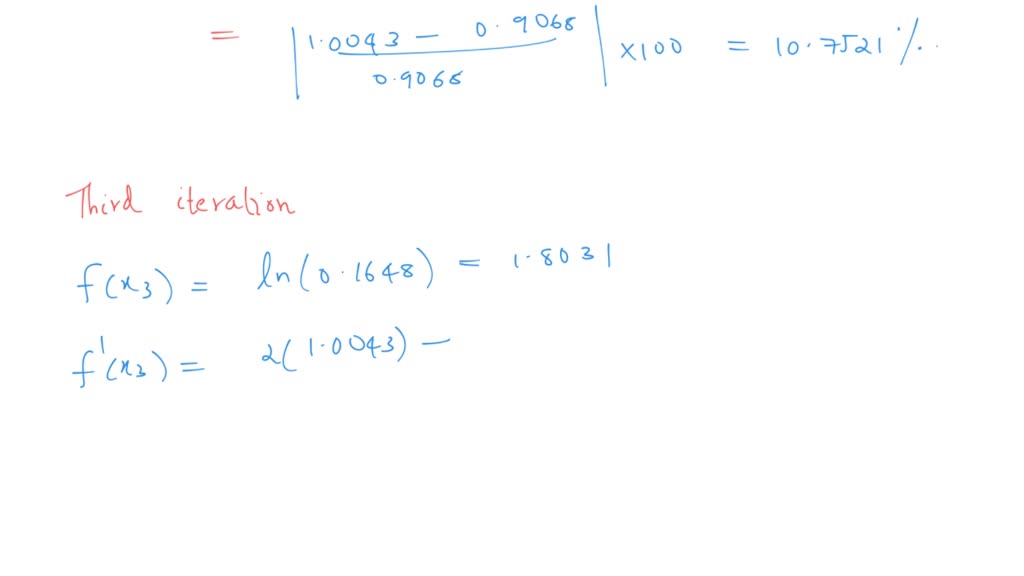 = | 1.0043 - 0.9068 / 0.9068 | x100 = 10.7521 %.
Third iteration
f(x3) = ln(0.1648) = 1.8031
f'(x3) = 2(1.0043) -